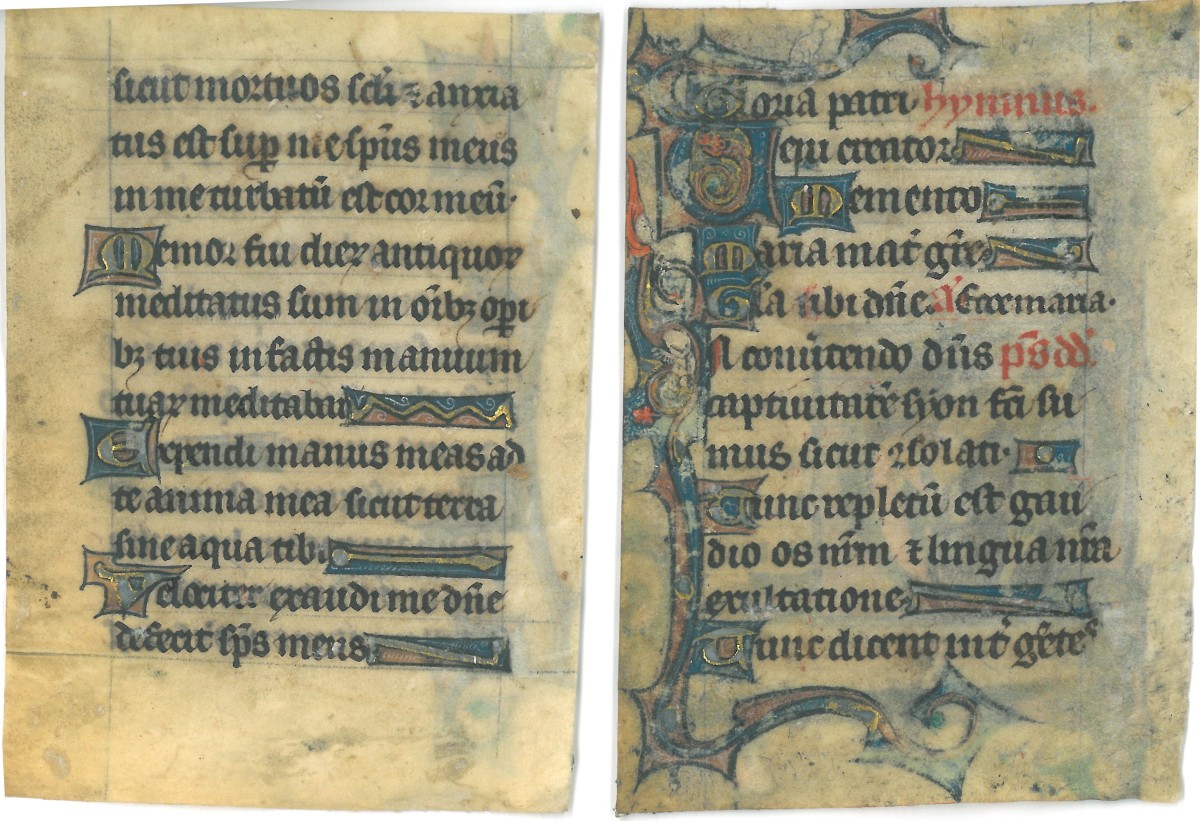 sicut mortuos scłi ⁊ anxia
tus est sup me sp̃us meus
in me turbatũ est cor meũ·
Memor fui dieꝝ antiquoꝝ
meditatus sum in oĩbꝫ opi
bꝫ tuis in factis manuum
tuaꝝ meditabar
Expendi manus meas ad
te anima mea sicut terra
sine aqua tibi
Velociter exaudi me dñe
defecit sp̃s meus
Gloria patri hymnus.
Veni creator
Memento
Maria mat̃ gr̃e
Gła tibi dñe A᷉ Ecce maria·
In conũtendo dñs p̃s dd̃.
captiuitatẽ syon fc̃i su
mus sicut ꝯsolati·
Tunc repletũ est gau
dio os nr̃m ⁊ lingua nr̃a
exultatione
Tunc dicent int̃ gẽtes